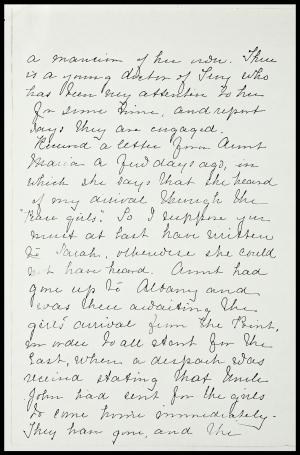 a mansion of her own. There
is a young doctor of Troy who
has been very attentive to her
for some time, and report
says they are engaged.
Received a letter from Aunt
Maria a few days ago, in
which she says that she heard
of my arrival through the
"Kane girls". So I suppose you
must at last have written
to Sarah, otherwise she could
not have heard. Aunt had
gone up to Albany and
was there awaiting the
girls' arrival from the Point,
in order to all start for the
East, when a despatch was
received stating that Uncle
John had sent for the girls
to come home immediately.
They have gone, and the